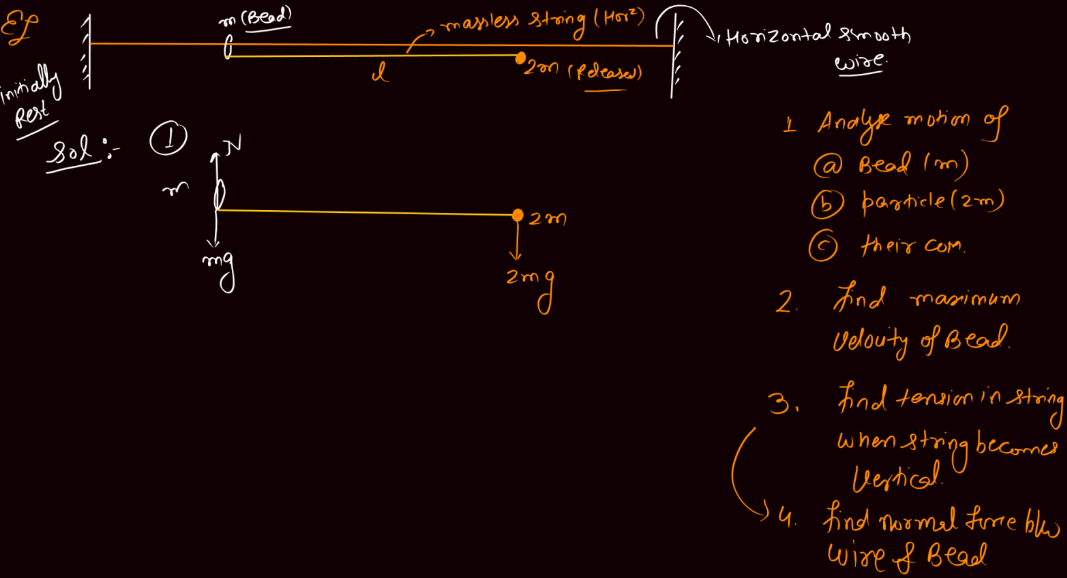 Eg
m (Bead)
massless string (Horz)
Horizontal smooth
wire.
l
2m (Released)
initially
Rest
Sol :-
①
N
m
2m
mg
2mg
1 Analyse motion of
ⓐ Bead (m)
ⓑ particle (2m)
ⓒ their com.
2. find maximum
velocity of Bead.
3. find tension in string
when string becomes
Vertical.
4. find normal force b/w
wire & Bead